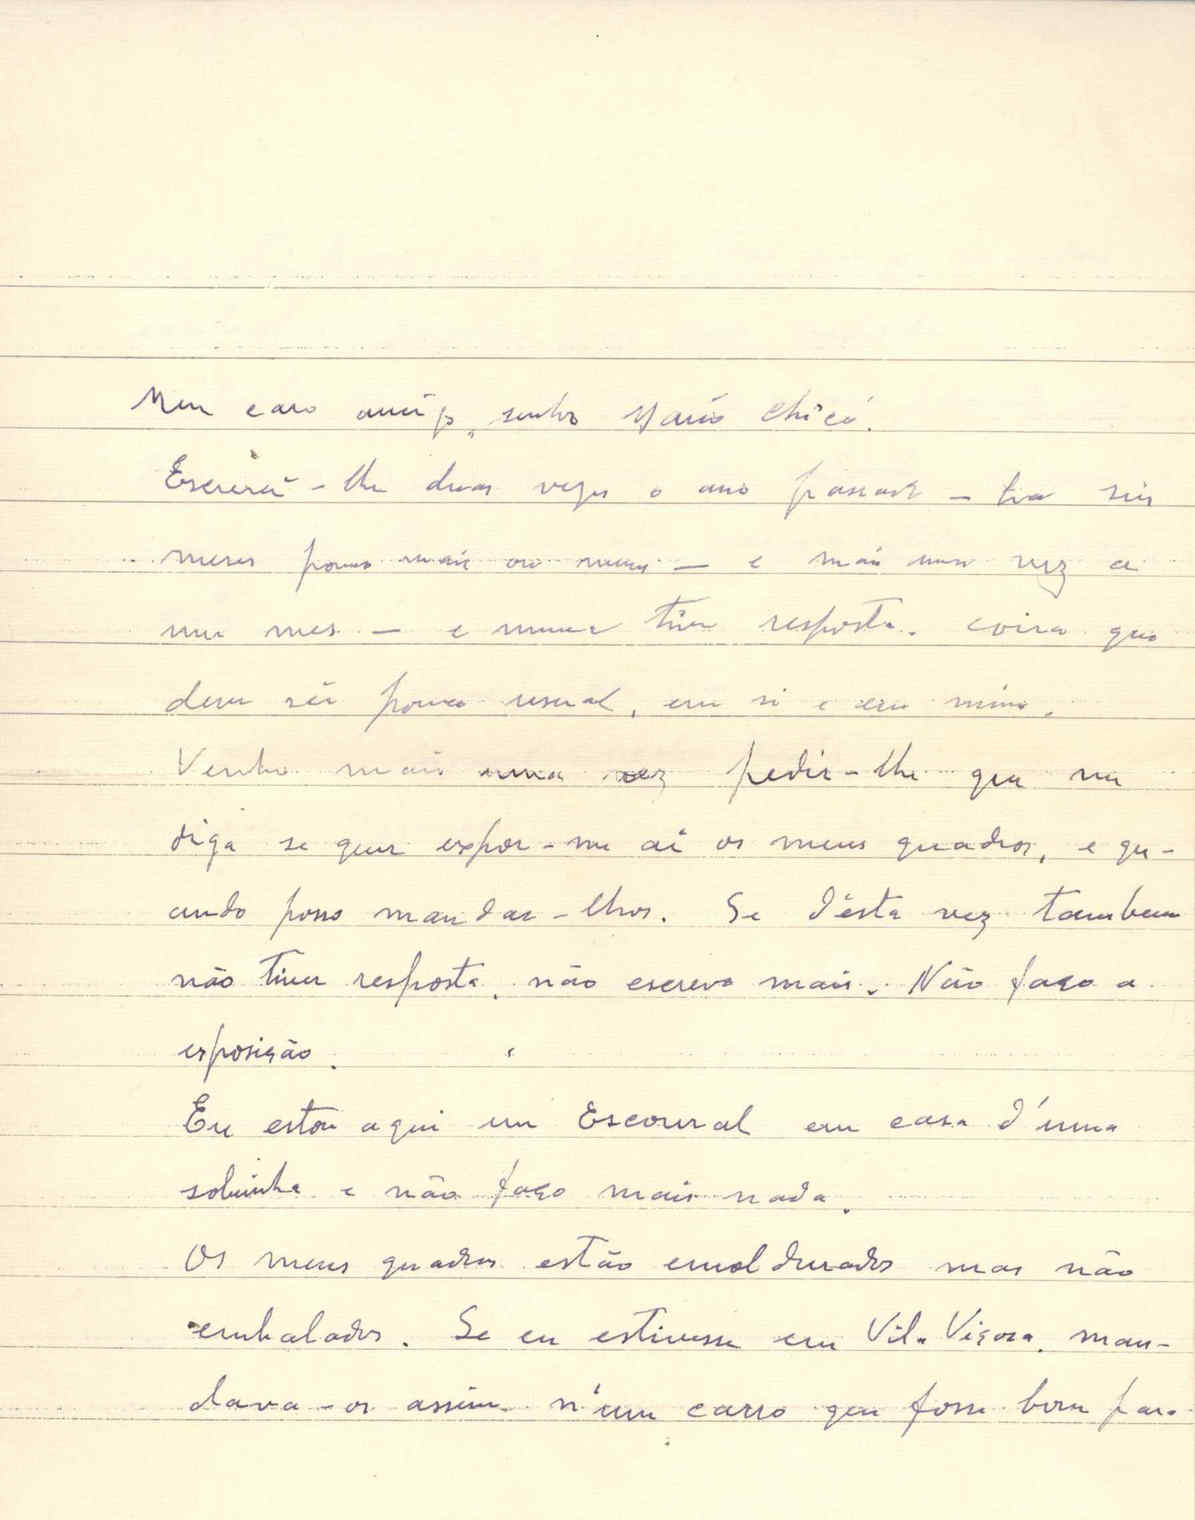 Meu caro amigo, senhor Mário Chicó.
Escrevi-lhe duas vezes o ano passado — há seis
meses pouco mais ou menos — e mais uma vez a
um mes — e nunca tive resposta. coisa que
deve sêr pouco usual, em si e em mim.
Venho mais uma vez pedir-lhe que me
diga se quer expor-me aí os meus quadros, e qu-
ando posso mandar-lhos. Se d'ésta vez tambem
não tiver resposta, não escrevo mais. Não faço a
exposição.
Eu estou aqui em Escoural em casa d'uma
sobrinha e não faço mais nada.
Os meus quadros estão emoldurados mas não
embalados. Se eu estivesse em Vila Viçosa, man-
dava-os assim n'um carro que fosse bom para